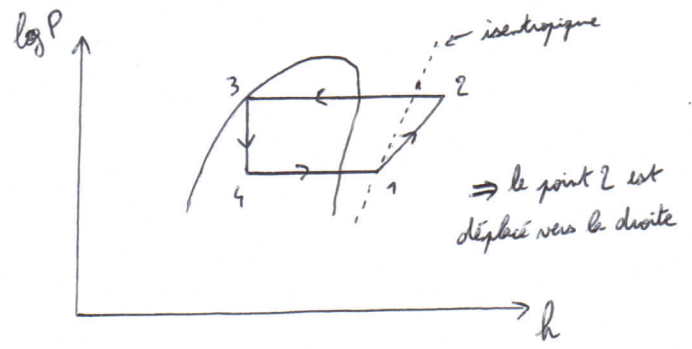 log P
isentropique
3
2
4
1
⇒ le point 2 est
déplacé vers la droite
h